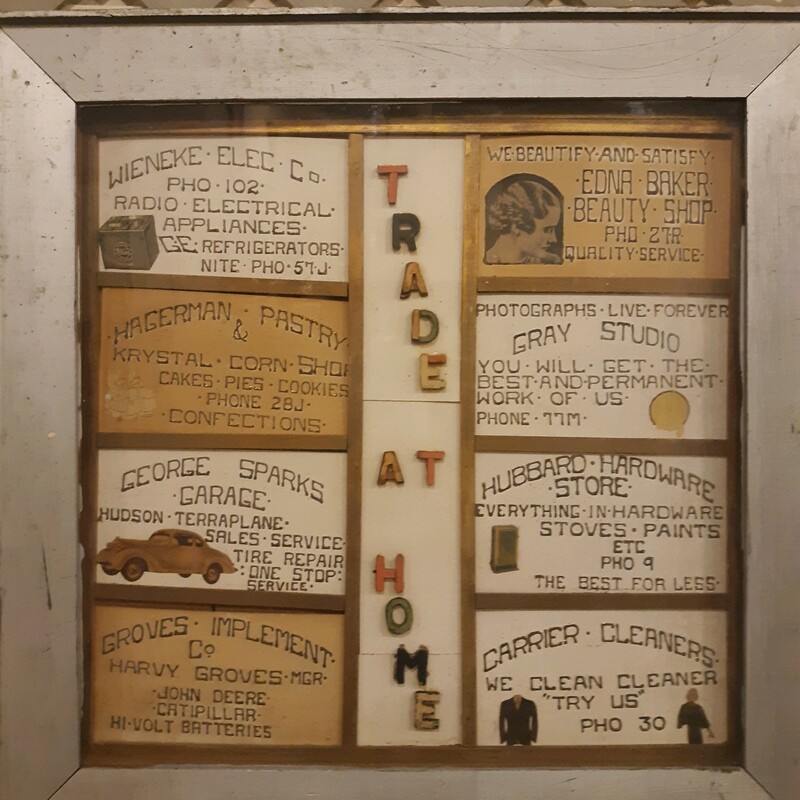 WIENEKE · ELEC · Co.
PHO · 102 ·
RADIO · ELECTRICAL ·
APPLIANCES ·
GE · REFRIGERATORS ·
NITE · PHO · 57·J ·
· HAGERMAN · PASTRY
&
KRYSTAL · CORN · SHOP
CAKES · PIES · COOKIES
· PHONE 28J ·
· CONFECTIONS ·
GEORGE SPARKS
· GARAGE ·
HUDSON · TERRAPLANE ·
SALES · SERVICE ·
TIRE REPAIR
: ONE STOP :
SERVICE ·
GROVES · IMPLEMENT ·
Co
HARVY GROVES · MGR ·
· JOHN DEERE ·
· CATIPILLAR ·
HI · VOLT BATTERIES
TRADE
AT
HOME
WE · BEAUTIFY · AND · SATISFY ·
· EDNA · BAKER ·
· BEAUTY · SHOP ·
PHO · 27R ·
QUALITY · SERVICE ·
PHOTOGRAPHS · LIVE · FOREVER
GRAY STUDIO
YOU · WILL · GET · THE ·
BEST · AND · PERMANENT ·
WORK · OF · US ·
PHONE · 77M ·
HUBBARD · HARDWARE
· STORE ·
EVERYTHING · IN · HARDWARE
STOVES · PAINTS
ETC
PHO 9
THE BEST FOR LESS ·
CARRIER · CLEANERS ·
WE CLEAN CLEANER
"TRY US"
PHO 30